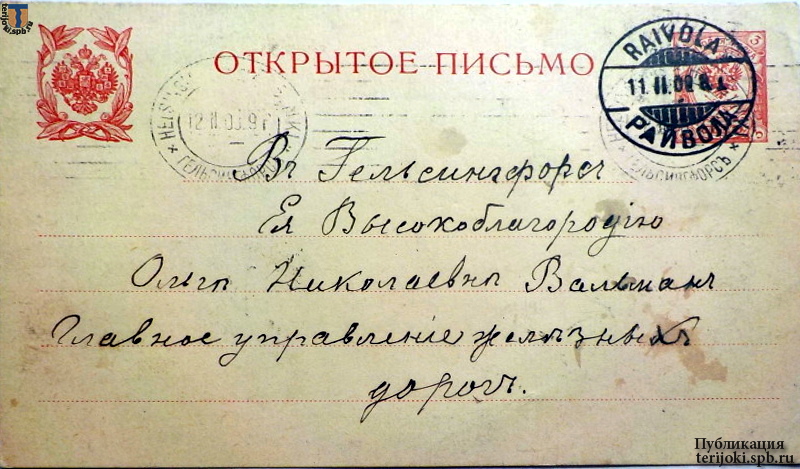 terijoki.spb.ru
ОТКРЫТОЕ ПИСЬМО
RAIVOLA
11.II.09
РАЙВОЛА
3
12 II 09
ГЕЛЬСИНГФОРСЪ
Въ Гельсингфорсъ
Ея Высокоблагородію
Ольгѣ Николаевнѣ Вальманъ
Главное управленіе желѣзныхъ
дорогъ.
Публикация
terijoki.spb.ru